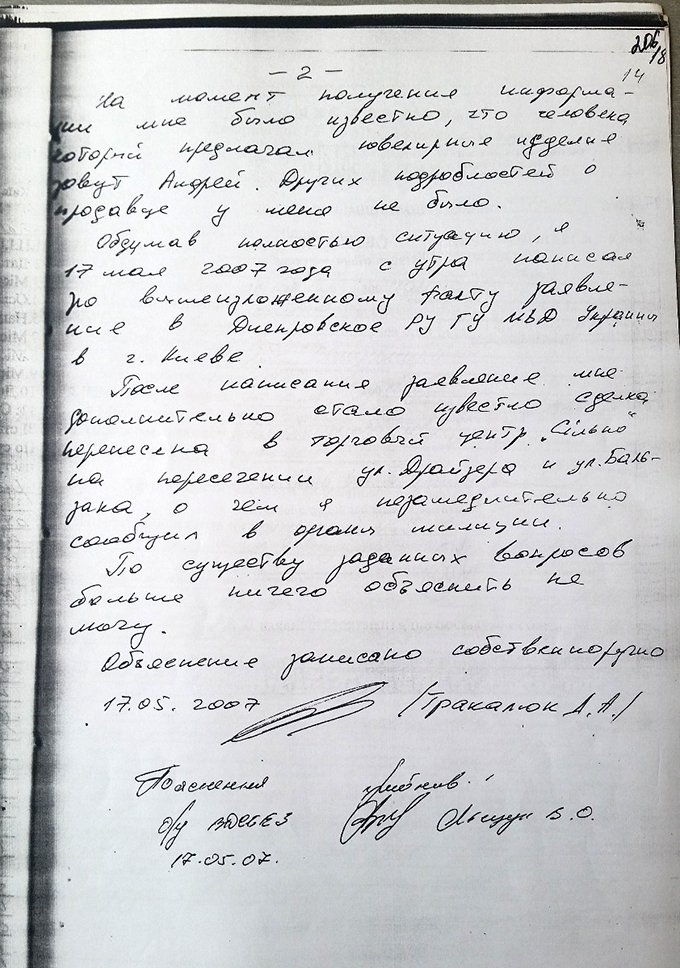 206
18
14
- 2 -
На момент получения информа-
ции мне было известно, что человека
который предлагал ювелирные изделия
зовут Андрей. Других подробностей о
продавце у меня не было.
Обдумав полностью ситуацию, я
17 мая 2007 года с утра написал
по вышеизложенному факту заявле-
ние в Днепровское РУ ГУ МВД Украины
в г. Киеве
После написания заявление мне
дополнительно стало известно сделка
перенесена в торговый центр „Сільпо"
на пересечении ул. Драйзера и ул. Баль-
зака, о чем я незамедлительно
сообщил в органы милиции.
По существу заданных вопросов
больше ничего объяснить не
могу.
Объяснение записано собственноручно
17.05.2007 /Тракалюк А.А./
Пояснення прийняв:
о/у ВДСБЕЗ В.О.
17.05.07.